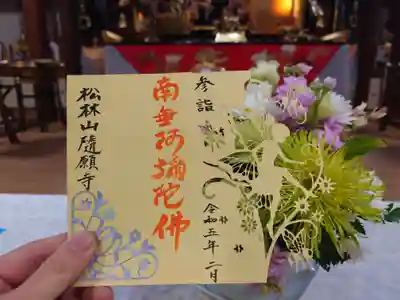 参詣
令和五年二月
南無阿弥陀佛
松林山隨願寺